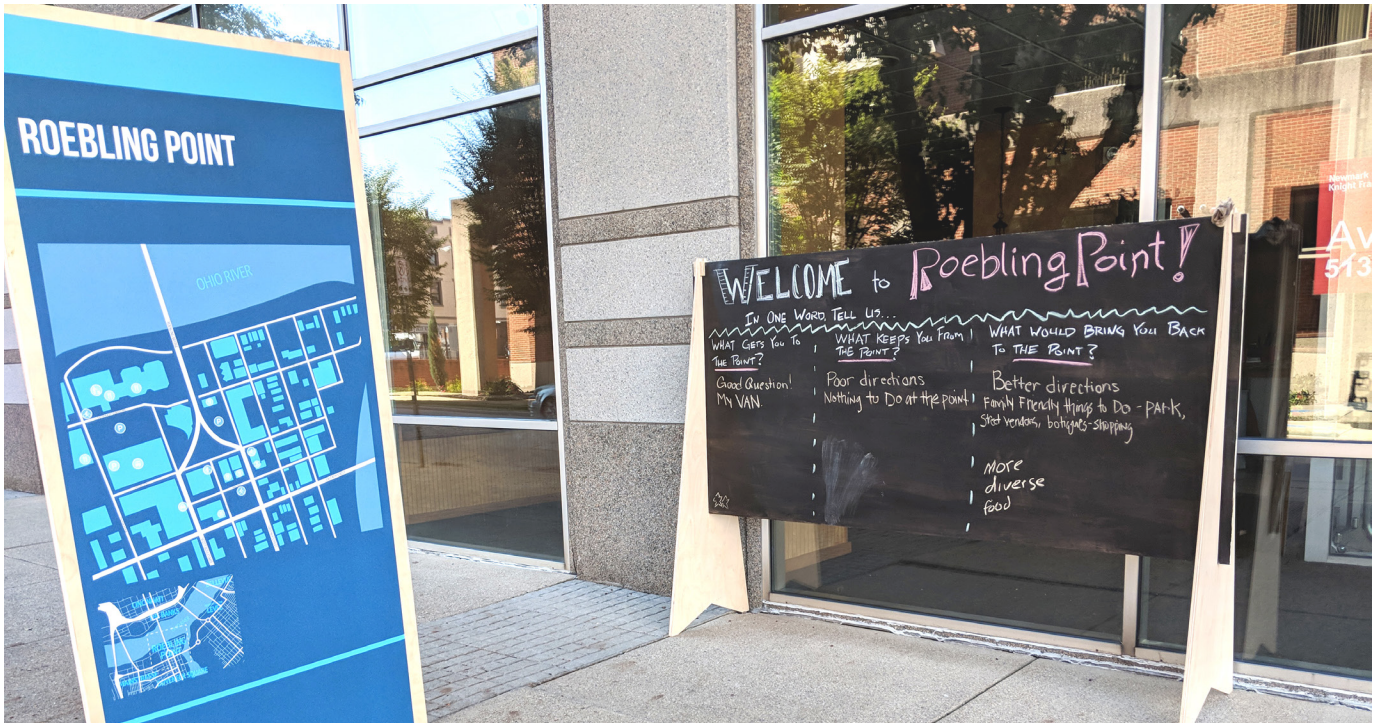 ROEBLING POINT
OHIO RIVER
P
P
WELCOME to Roebling Point!
IN ONE WORD, TELL US...
WHAT GETS YOU TO
THE POINT?
Good Question!
My VAN.
WHAT KEEPS YOU FROM
THE POINT?
Poor directions
Nothing to Do at the point
WHAT WOULD BRING YOU BACK
TO THE POINT?
Better directions
Family Friendly things to Do - park,
street vendors, botiques-shopping
more
diverse
food
Newmark
Knight Fra
Av
513